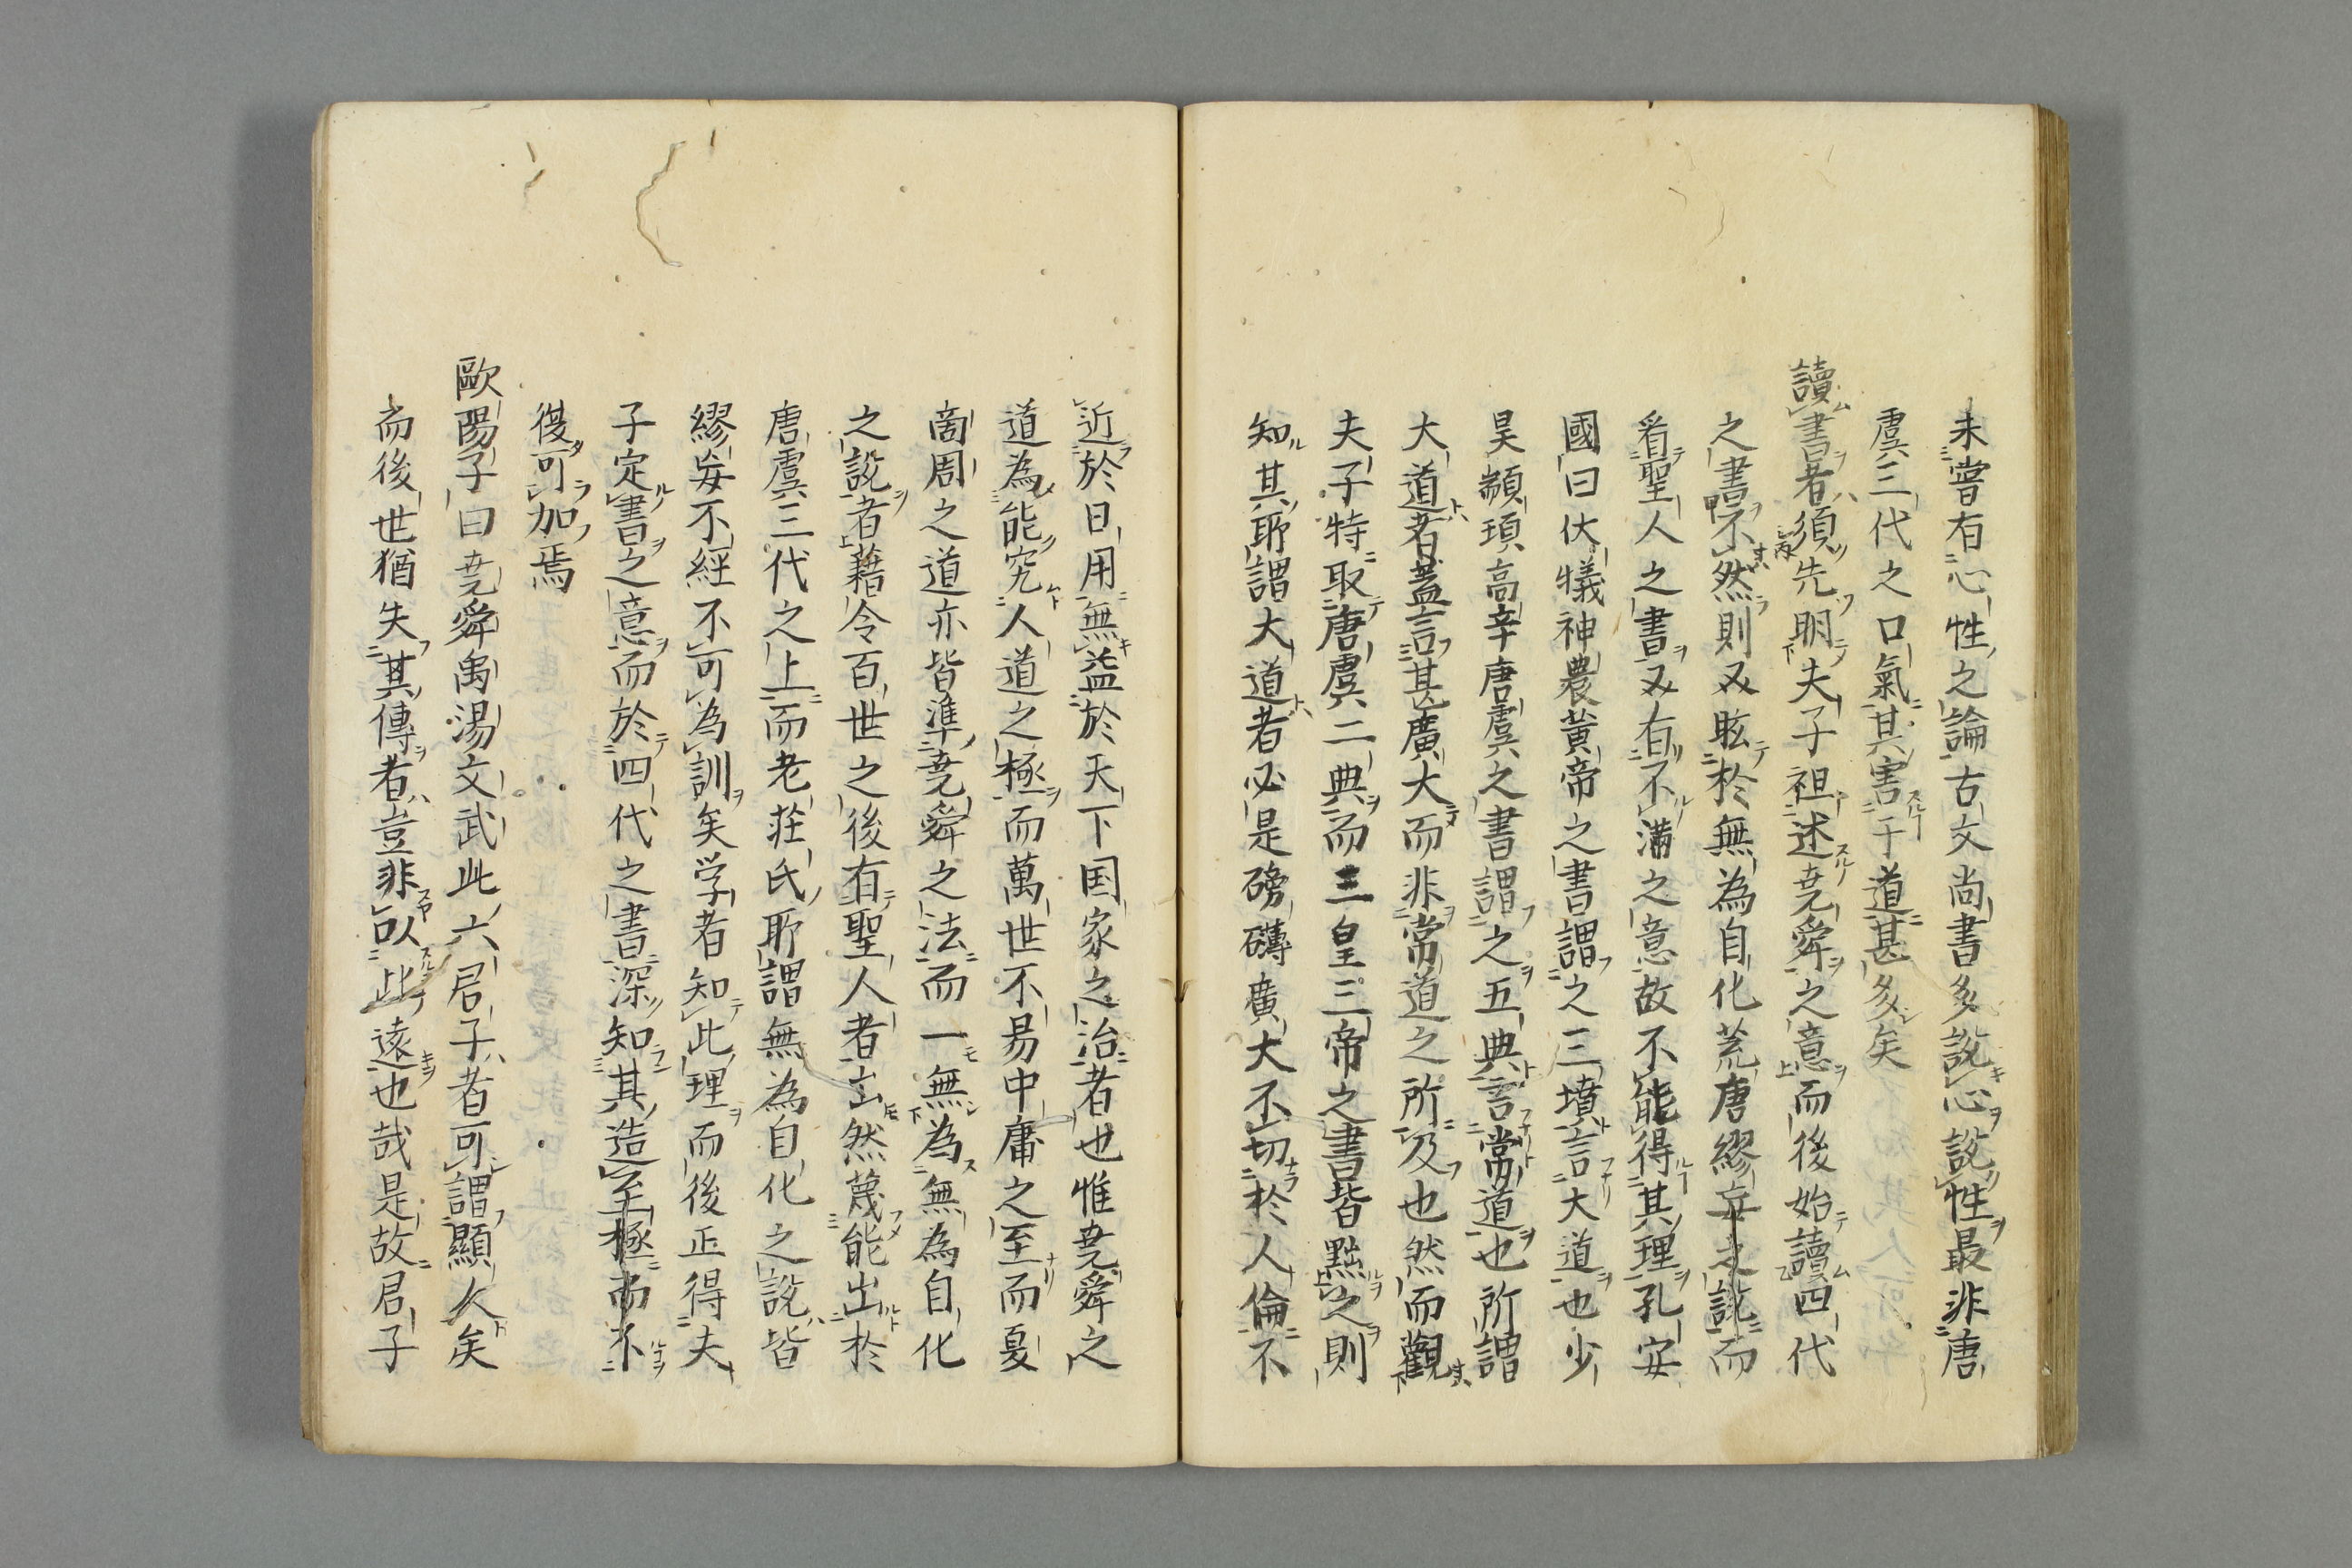 未嘗有心性之論古文尚書多説心説性最非唐
虞三代之口氣其害于道甚多矣
讀書者須先明夫子祖述堯舜之意而後始讀四代
之書不然則又眩於無為自化荒唐繆妄之説而
看聖人之書又有不滿之意故不能得其理孔安
國曰伏犠神農黄帝之書謂之三墳言大道也少
昊顓頊高辛唐虞之書謂之五典言常道也所謂
大道者蓋言甚廣大而非常道之所及也然而觀
夫子特取唐虞二典而三皇三帝之書皆黜之則
知其所謂大道者必是磅礴廣大不切於人倫不
近於日用無益於天下国家之治者也惟堯舜之
道為能究人道之極而萬世不易中庸之至而夏
商周之道亦皆準堯舜之法而一無為無為自化
之説者藉令百世之後有聖人者出然蔑能出於
唐虞三代之上而老莊氏所謂無為自化之説皆
繆妄不經不可為訓矣学者知此理而後正得夫
子定書之意而於四代之書深知其造至極而不
復可加焉
歐陽子曰堯舜禹湯文武此六君子者可謂顯人矣
而後世猶失其傳者豈非以此遠也哉是故君子